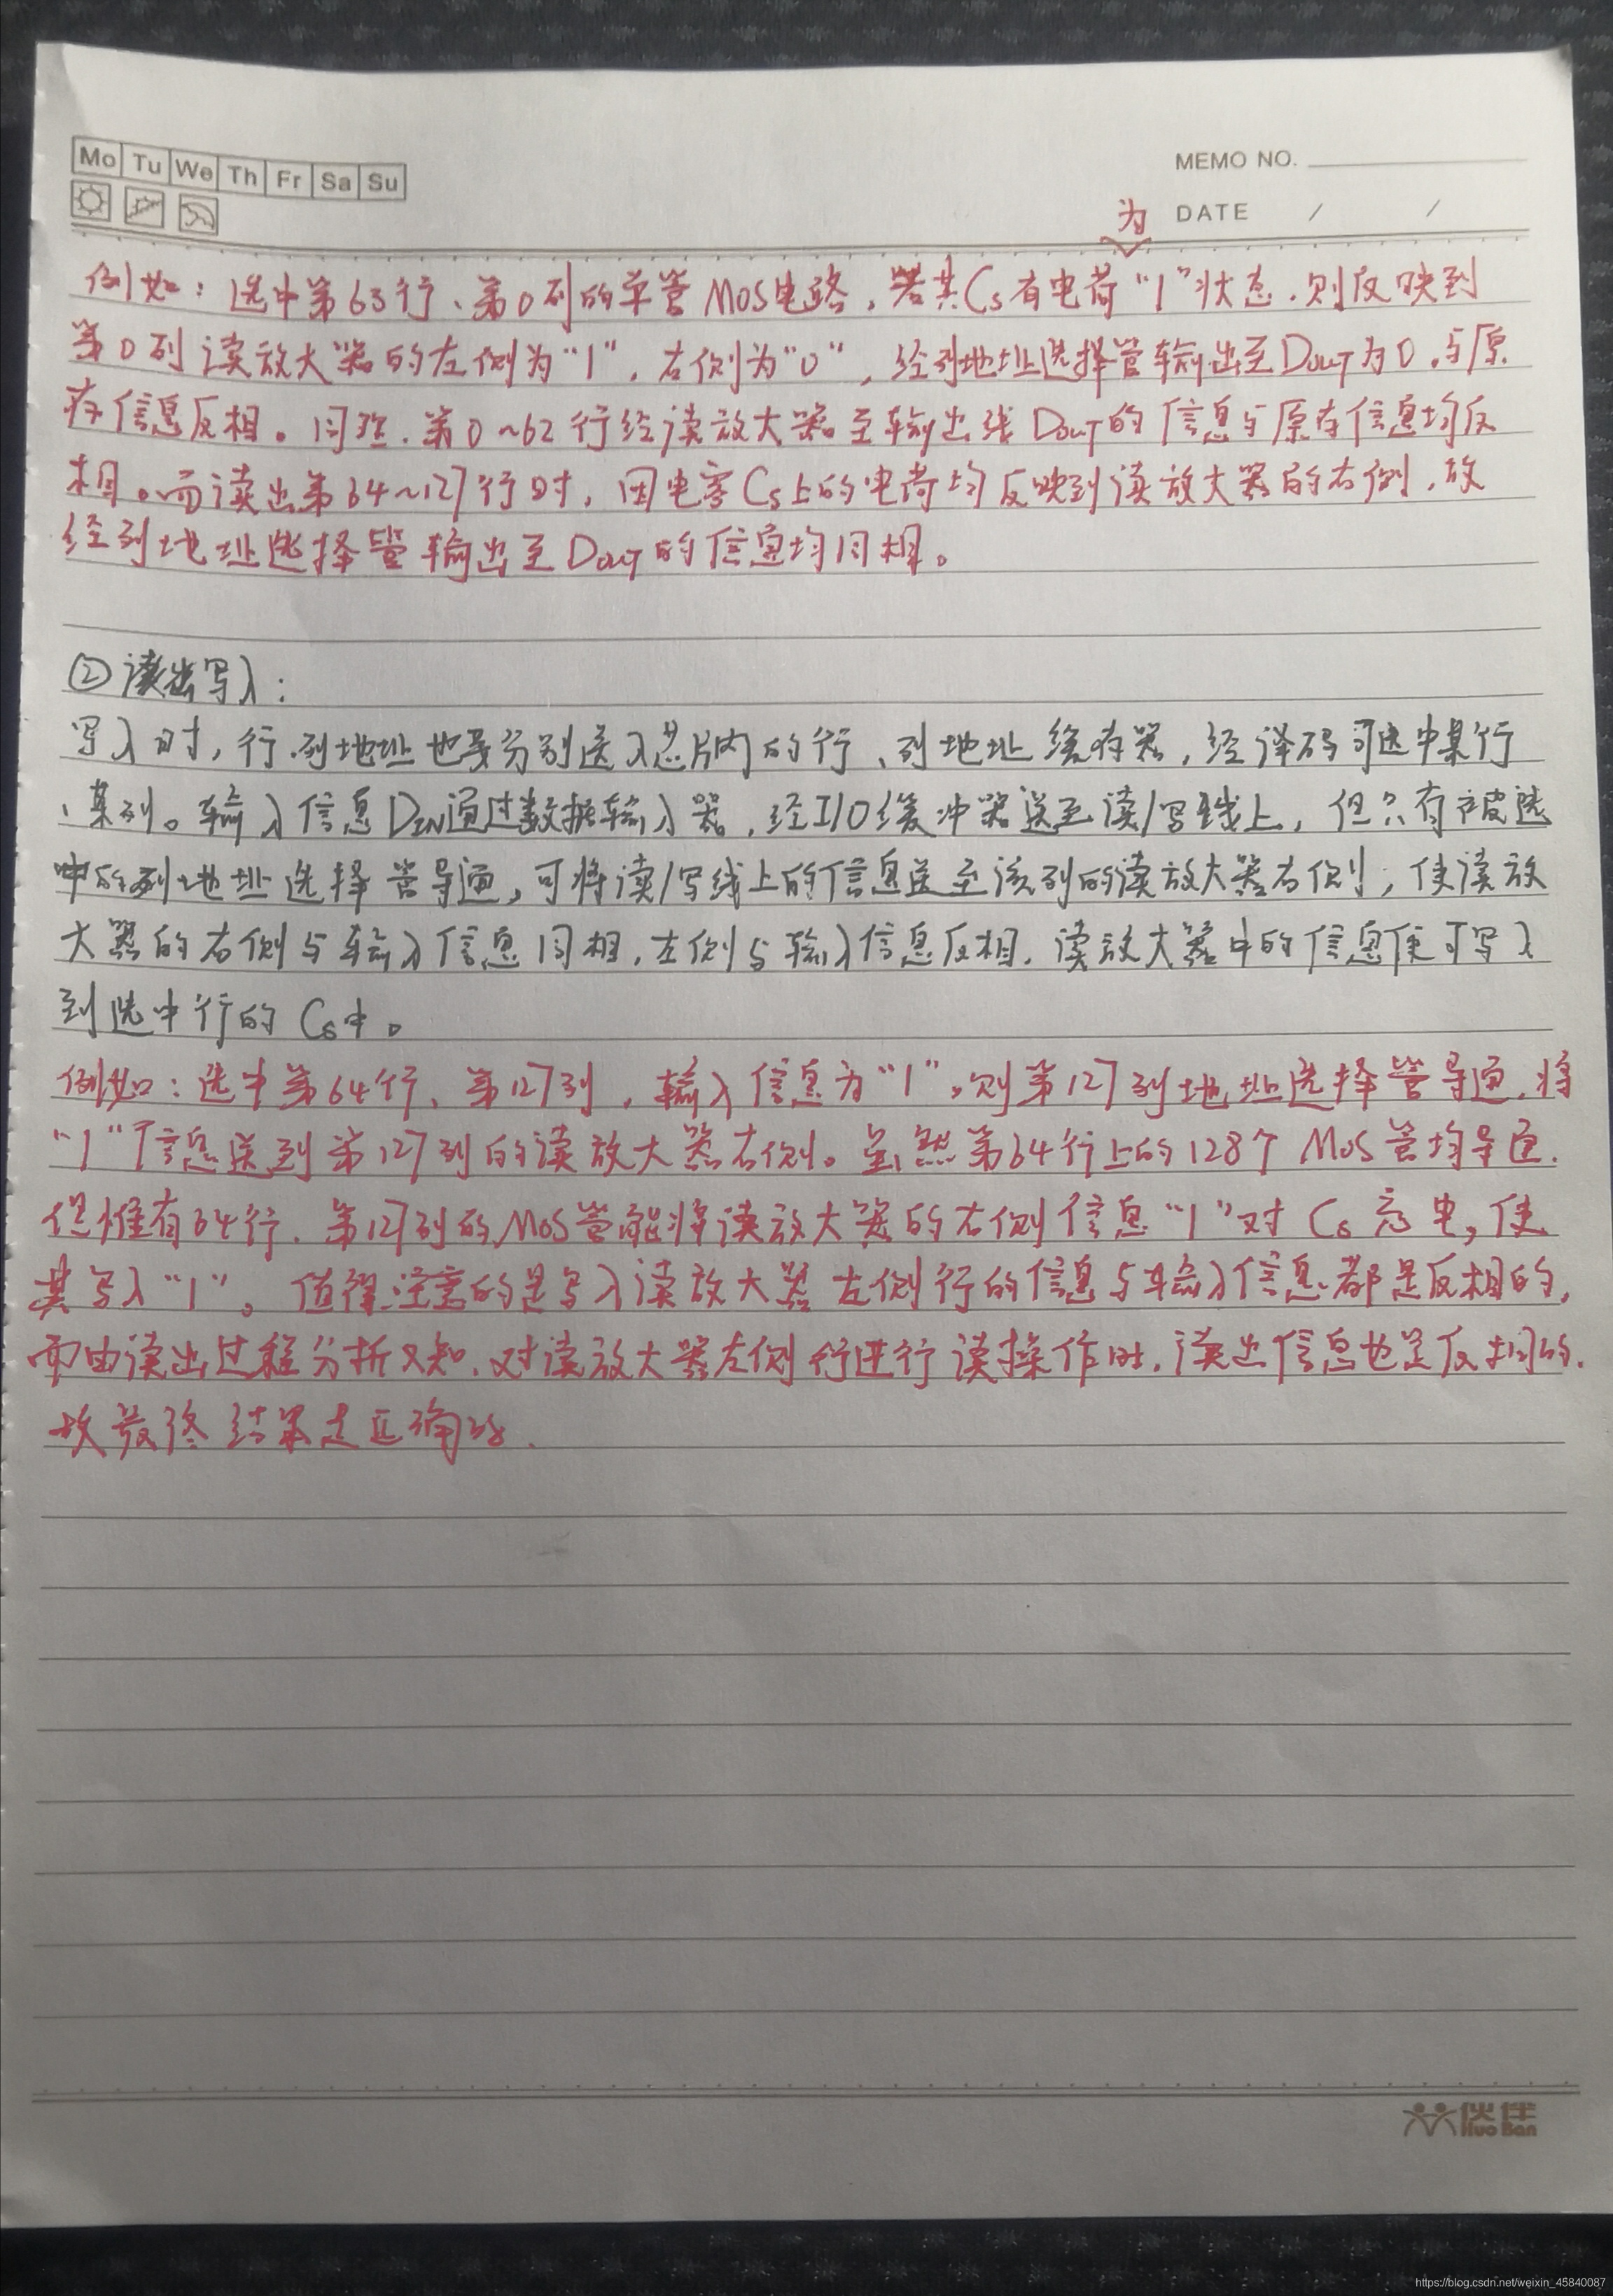 Mo Tu We Th Fr Sa Su
MEMO NO.
DATE / /
为
例如：选中第63行、第0列的单管MOS电路，若其Cs有电荷“1”状态，则反映到
第0列读放大器的左侧为“1”，右侧为“0”，经列地址选择管输出至DOUT为0，与原
存信息反相。同理，第0~62行经读放大器至输出线DOUT的信息与原存信息均反
相。而读出第64~127行时，因电容Cs上的电荷均反映到读放大器的右侧，故
经列地址选择管输出至DOUT的信息均同相。
②读出写入：
写入时，行、列地址也要分别送入芯片内的行、列地址缓存器，经译码可选中某行
、某列。输入信息DIN通过数据输入器，经I/O缓冲器送至读/写线上，但只有被选
中的列地址选择管导通，可将读/写线上的信息送至该列的读放大器右侧，使读放
大器的右侧与输入信息同相，左侧与输入信息反相，读放大器中的信息便可写入
到选中行的Cs中。
例如：选中第64行、第127列，输入信息为“1”，则第127列地址选择管导通，将
“1”信息送到第127列的读放大器右侧。虽然第64行上的128个MOS管均导通，
但惟有64行、第127列的MOS管能将读放大器的右侧信息“1”对Cs充电，使
其写入“1”。值得注意的是写入读放大器左侧行的信息与输入信息都是反相的，
而由读出过程分析又知，对读放大器左侧行进行读操作时，读出信息也是反相的，
故最终结果是正确的.
伙伴
Huo Ban
https://blog.csdn.net/weixin_45840087